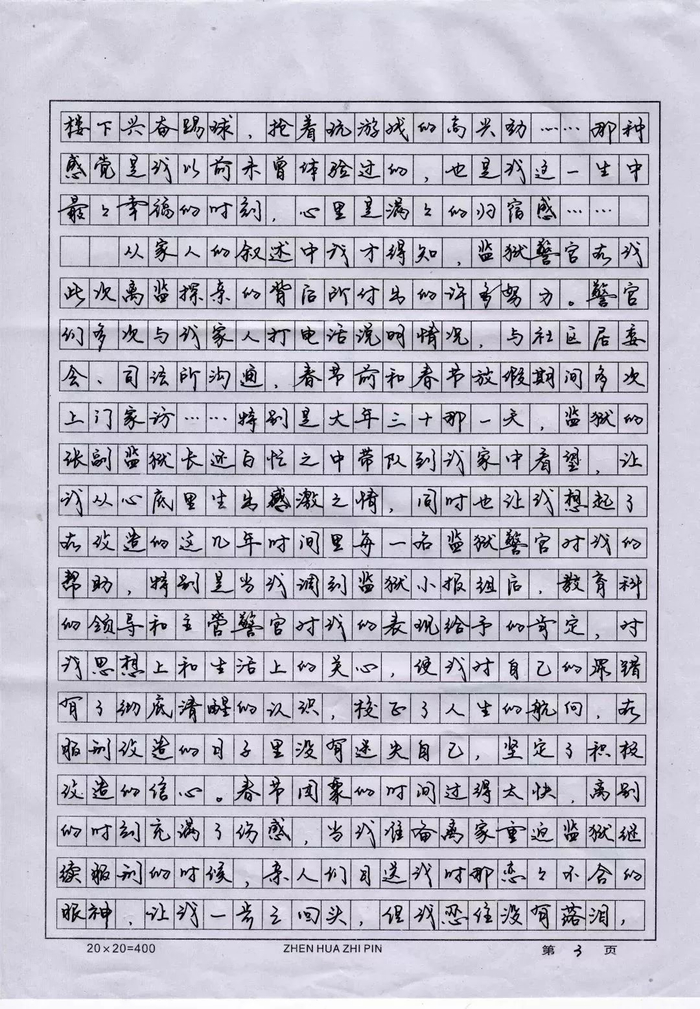 楼下兴奋踢球，抢着玩游戏的高兴劲……那种
感觉是我以前未曾体验过的，也是我这一生中
最々幸福的时刻，心里是满々的归宿感……
从家人的叙述中我才得知，监狱警官在我
此次离监探亲的背后所付出的许多努力。警官
们多次与我家人打电话说明情况，与社区居委
会、司法所沟通，春节前和春节放假期间多次
上门家访……特别是大年三十那一天，监狱的
张副监狱长还百忙之中带队到我家中看望，让
我从心底里生出感激之情，同时也让我想起了
在改造的这几年时间里每一名监狱警官对我的
帮助，特别是当我调到监狱小报组后，教育科
的领导和主管警官对我的表现给予的肯定，对
我思想上和生活上的关心，使我对自己的罪错
有了彻底清醒的认识，校正了人生的航向，在
服刑改造的日子里没有迷失自己，坚定了积极
改造的信心。春节团聚的时间过得太快，离别
的时刻充满了伤感，当我准备离家重返监狱继
续服刑的时候，亲人们目送我时那恋々不舍的
眼神，让我一步三回头，但我忍住没有落泪，
20×20=400 ZHEN HUA ZHI PIN 第 3 页